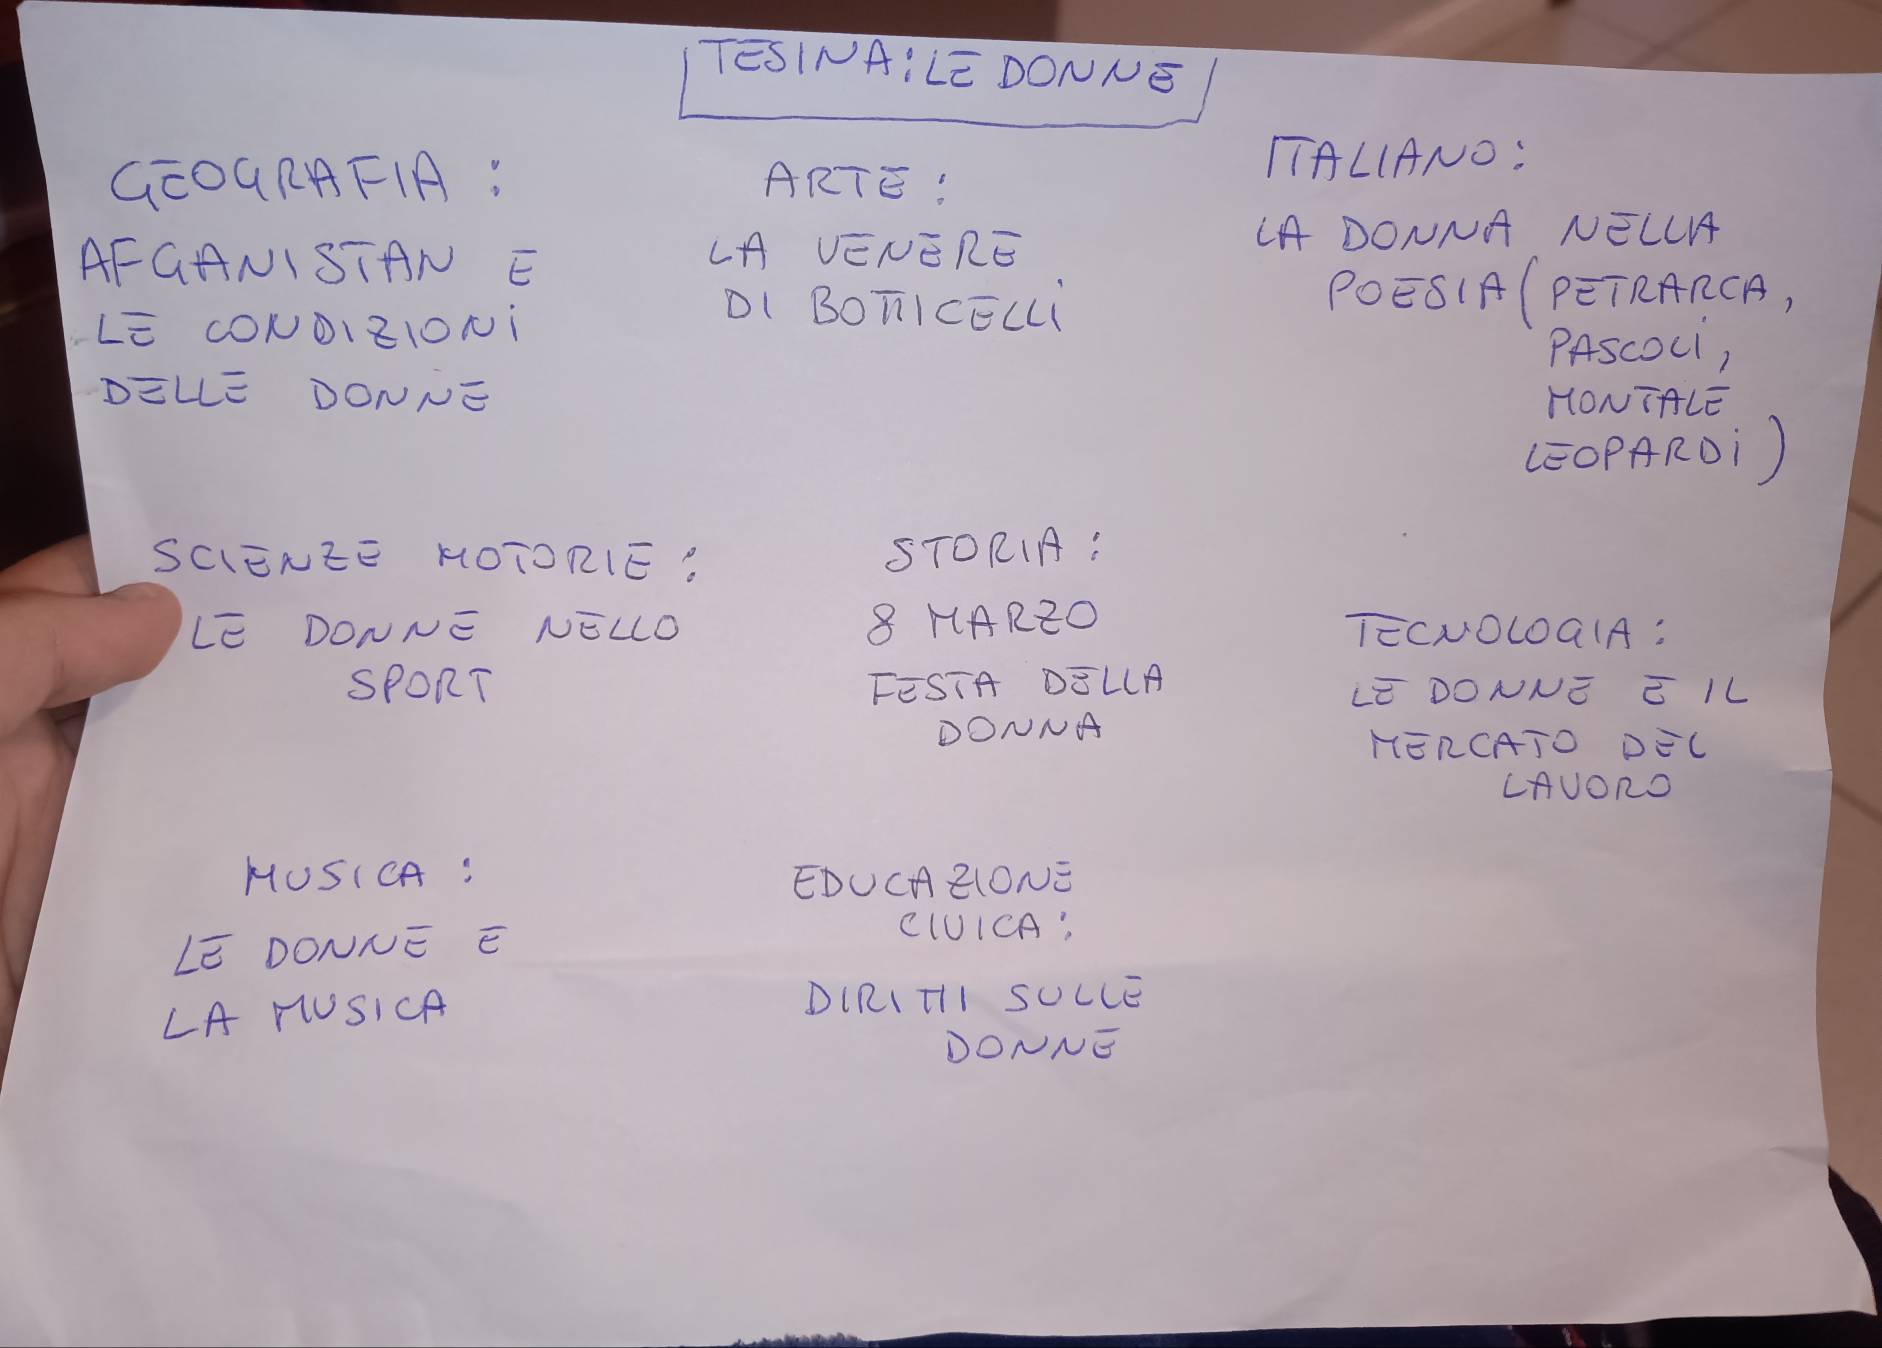 TESINA: LE DONNE
GEOGRAFIA:
AFGANISTAN E
LE CONDIZIONI
DELLE DONNE
ARTE:
LA VENERE
DI BOTTICELLI
ITALIANO:
LA DONNA NELLA
POESIA (PETRARCA,
PASCOLI,
MONTALE
LEOPARDI)
SCIENZE MOTORIE:
LE DONNE NELLO
SPORT
STORIA:
8 MARZO
FESTA DELLA
DONNA
TECNOLOGIA:
LE DONNE E IL
MERCATO DEL
LAVORO
MUSICA:
LE DONNE E
LA MUSICA
EDUCAZIONE
CIVICA:
DIRITTI SULLE
DONNE